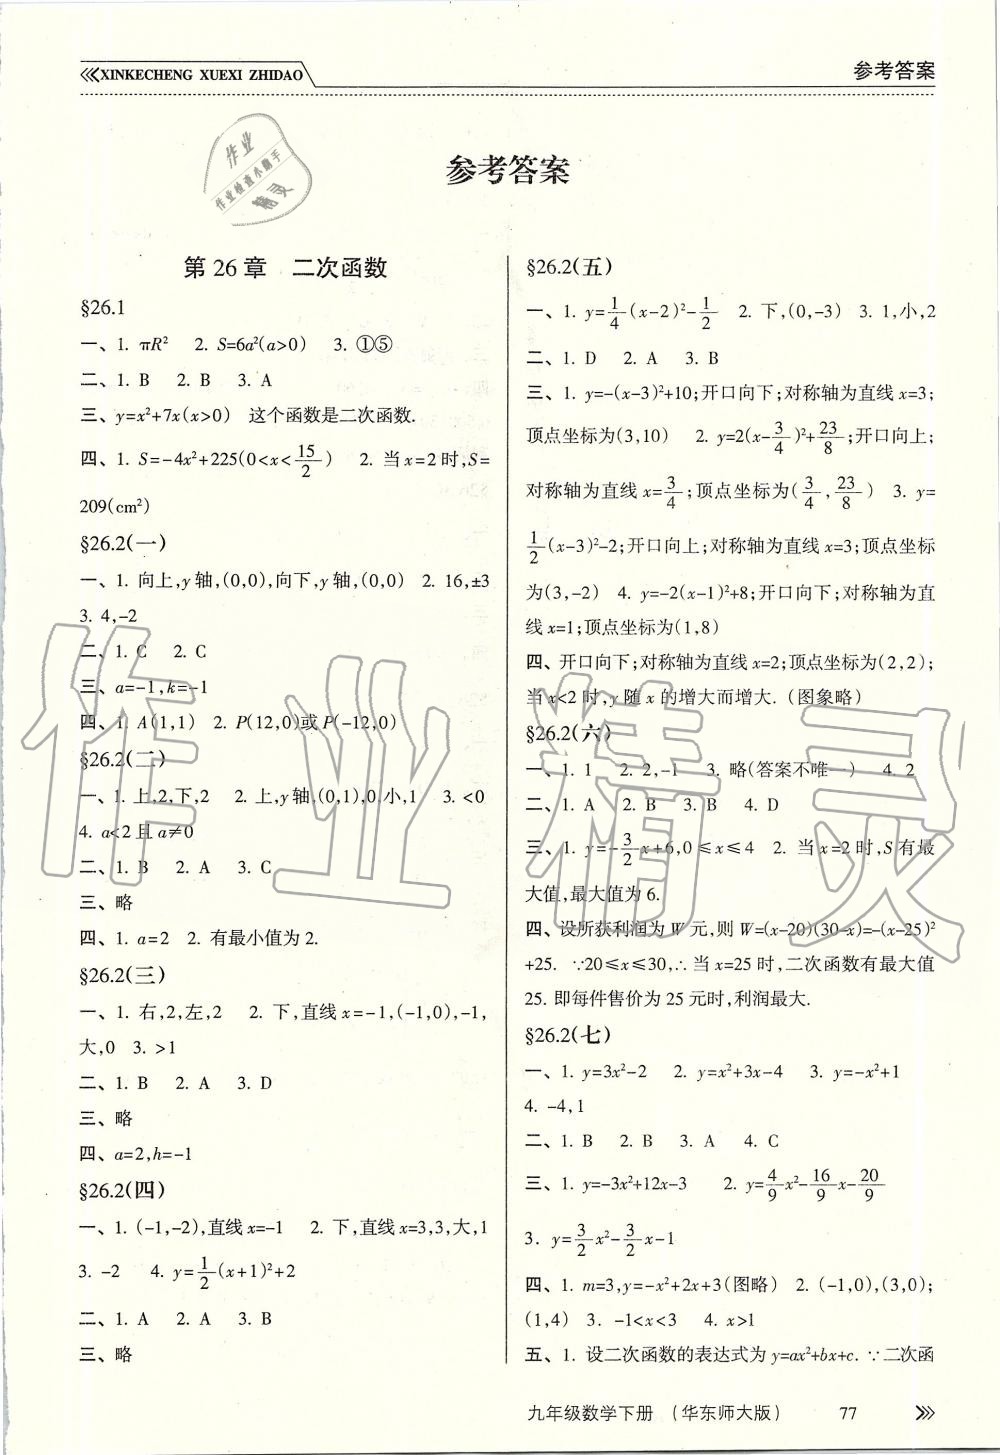 XINKECHENG XUEXI ZHIDAO
参考答案
作业
作业检查小助手
精灵
参考答案
第 26 章 二次函数
§26.1
一、1. πR² 2. S=6a²(a>0) 3. ①⑤
二、1. B 2. B 3. A
三、y=x²+7x(x>0) 这个函数是二次函数.
四、1. S=-4x²+225(0<x<15/2) 2. 当x=2时,S=
209(cm²)
§26.2(一)
一、1. 向上,y轴,(0,0),向下,y轴,(0,0) 2. 16,±3
3. 4,-2
二、1. C 2. C
三、a=-1,k=-1
四、1. A(1,1) 2. P(12,0)或P(-12,0)
§26.2(二)
一、1. 上,2,下,2 2. 上,y轴,(0,1),0,小,1 3. <0
4. a<2且a≠0
二、1. B 2. A 3. C
三、略
四、1. a=2 2. 有最小值为2.
§26.2(三)
一、1. 右,2,左,2 2. 下,直线x=-1,(-1,0),-1,
大,0 3. >1
二、1. B 2. A 3. D
三、略
四、a=2,h=-1
§26.2(四)
一、1. (-1,-2),直线x=-1 2. 下,直线x=3,3,大,1
3. -2 4. y=1/2(x+1)²+2
二、1. A 2. A 3. B
三、略
§26.2(五)
一、1. y=1/4(x-2)²-1/2 2. 下,(0,-3) 3. 1,小,2
二、1. D 2. A 3. B
三、1. y=-(x-3)²+10;开口向下;对称轴为直线x=3;
顶点坐标为(3,10) 2. y=2(x-3/4)²+23/8;开口向上;
对称轴为直线x=3/4;顶点坐标为(3/4,23/8) 3. y=
1/2(x-3)²-2;开口向上;对称轴为直线x=3;顶点坐标
为(3,-2) 4. y=-2(x-1)²+8;开口向下;对称轴为直
线x=1;顶点坐标为(1,8)
四、开口向下;对称轴为直线x=2;顶点坐标为(2,2);
当x<2时,y随x的增大而增大.(图象略)
§26.2(六)
一、1. 1 2. 2,-1 3. 略(答案不唯一) 4. 2
二、1. A 2. B 3. B 4. D
三、1. y=-3/2x+6,0≤x≤4 2. 当x=2时,S有最
大值,最大值为6.
四、设所获利润为W元,则W=(x-20)(30-x)=-(x-25)²
+25. ∵20≤x≤30,∴当x=25时,二次函数有最大值
25. 即每件售价为25元时,利润最大.
§26.2(七)
一、1. y=3x²-2 2. y=x²+3x-4 3. y=-x²+1
4. -4,1
二、1. B 2. B 3. A 4. C
三、1. y=-3x²+12x-3 2. y=4/9x²-16/9x-20/9
3. y=3/2x²-3/2x-1
四、1. m=3,y=-x²+2x+3(图略) 2. (-1,0),(3,0);
(1,4) 3. -1<x<3 4. x>1
五、1. 设二次函数的表达式为y=ax²+bx+c. ∵二次函
九年级数学下册 (华东师大版) 77
作业精灵